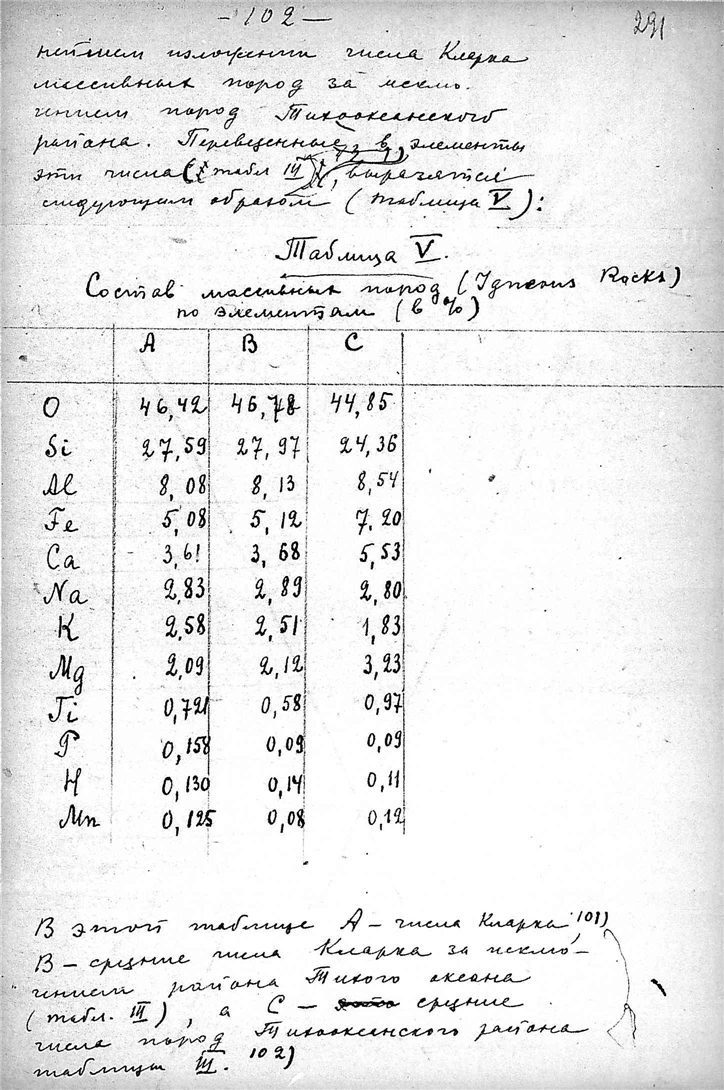 -102-
291
нейшем изложении числа Кларка
массивных пород за исклю-
чением пород Тихоокеанского
района. Переведенные в элементы
эти числа (табл III), выразятся
следующим образом (таблица V):
Таблица V.
Состав массивных пород (Igneous Rocks)
по элементам (в %)
A B C
O 46,42 46,78 44,85
Si 27,59 27,97 24,36
Al 8,08 8,13 8,54
Fe 5,08 5,12 7,20
Ca 3,61 3,68 5,53
Na 2,83 2,89 2,80
K 2,58 2,51 1,83
Mg 2,09 2,12 3,23
Ti 0,721 0,58 0,97
P 0,158 0,09 0,09
H 0,130 0,14 0,11
Mn 0,125 0,08 0,12
В этой таблице А - числа Кларка 101)
В - средние числа Кларка за исклю-
чением района Тихого океана
(табл. III), а С - средние
числа пород Тихоокеанского района
таблицы III. 102)